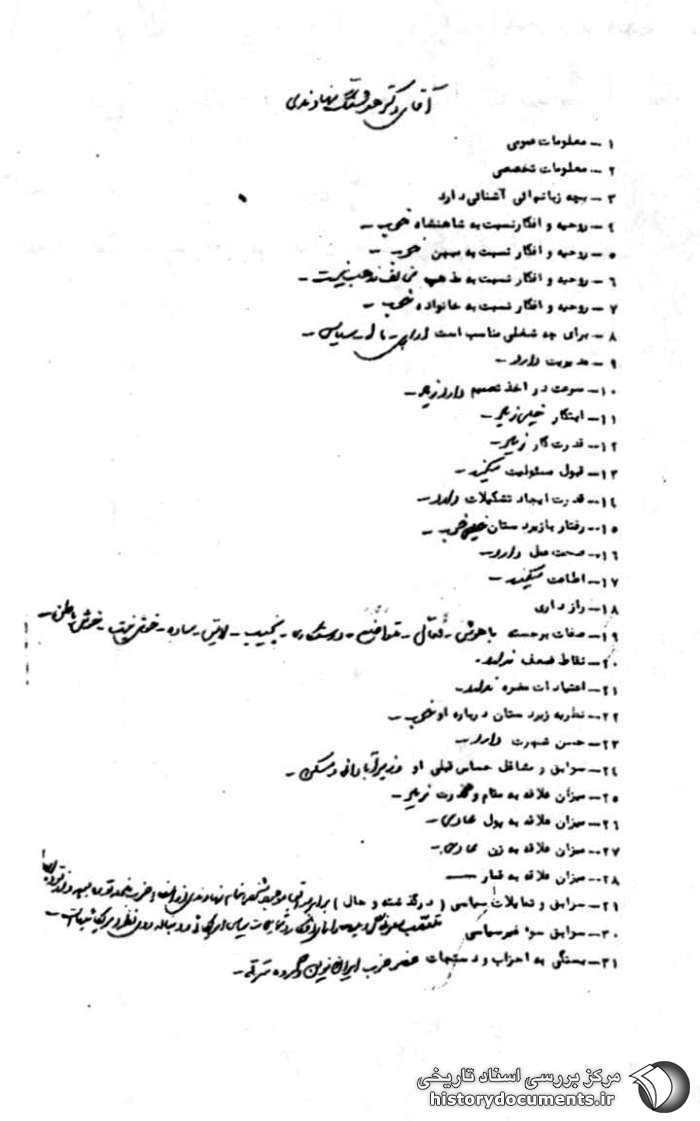 آقای دکتر هوشنگ نهاوندی
۱ – معلومات عمومی
۲ – معلومات تخصصی
۳ – بچه زبانهائی آشنائی دارد
۴ – روحیه و افکار نسبت به شاهنشاه خوب –
۵ – روحیه و افکار نسبت به میهن خوب –
۶ – روحیه و افکار نسبت به مذهب مخالف مذهب نیست –
۷ – روحیه و افکار نسبت به خانواده خوب –
۸ – برای چه شغلی مناسب است اداری – مالی – سیاسی –
۹ – مدیریت دارد –
۱۰ – سرعت در اخذ تصمیم دارد زیاد –
۱۱ – ابتکار خیلی زیاد –
۱۲ – قدرت کار زیاد –
۱۳ – قبول مسئولیت میکند –
۱۴ – قدرت ایجاد تشکیلات دارد –
۱۵ – رفتار با زیردستان خیلی خوب –
۱۶ – صحت عمل دارد –
۱۷ – اطاعت میکند –
۱۸ – رازداری
۱۹ – صفات برجسته باهوش – فعال – متواضع – درستکار – نجیب – لایق – ساده – خوش نیت – خوش باطن –
۲۰ – نقاط ضعف ندارد .
۲۱ – اعتیادات مضره ندارد –
۲۲ – نظریه زیردستان درباره او خوب –
۲۳ – حسن شهرت دارد –
۲۴ – سوابق و مشاغل حساس قبلی او وزیر آبادانی و مسکن –
۲۵ – میزان علاقه به مقام و قدرت زیاد –
۲۶ – میزان علاقه به پول عادی –
۲۷ – میزان علاقه به زن عادی –
۲۸ – میزان علاقه به قمار —
۲۹ – سوابق و تمایلات سیاسی ( در گذشته و حال )
۳۰ – سوابق سوء غیرسیاسی
۳۱ – بستگی به احزاب و دستجات عضو حزب ایران نوین و گروه مترقی –
مرکز بررسی اسناد تاریخی
historydocuments.ir